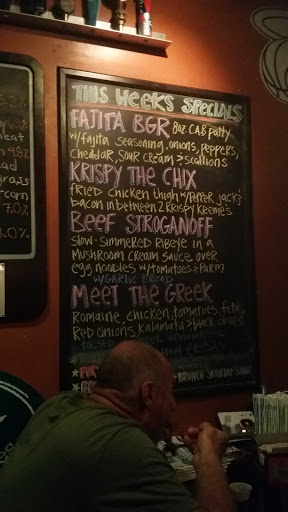 THIS WEEKS SPECIALS
FAJITA BGR 8oz C.A.B patty
w/fajita seasoning, onions, peppers,
cheddar, sour cream > scallions
KRISPY THE CHIX
fried chicken thigh w/pepper jack &
bacon in between 2 krispy kremes
BEEF STROGANOFF
slow-simmered ribeye in a
mushroom cream sauce over
egg noodles w/tomatoes & parm
w/GARLIC BREAD
MEET THE GREEK
Romaine, chicken, tomatoes, feta,
Red onions, kalamata > black olives
BRUNCH SATURDAY